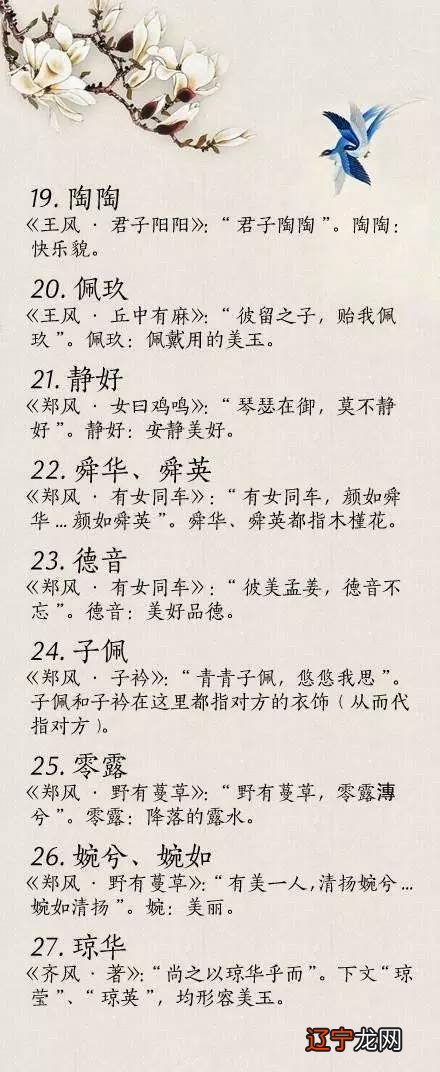 19. 陶陶
《王风 · 君子阳阳》：“君子陶陶”。陶陶：
快乐貌。
20. 佩玖
《王风 · 丘中有麻》：“彼留之子，贻我佩
玖”。佩玖：佩戴用的美玉。
21. 静好
《郑风 · 女曰鸡鸣》：“琴瑟在御，莫不静
好”。静好：安静美好。
22. 舜华、舜英
《郑风 · 有女同车》：“有女同车，颜如舜
华 ... 颜如舜英”。舜华、舜英都指木槿花。
23. 德音
《郑风 · 有女同车》：“彼美孟姜，德音不
忘”。德音：美好品德。
24. 子佩
《郑风 · 子衿》：“青青子佩，悠悠我思”。
子佩和子衿在这里都指对方的衣饰（从而代
指对方）。
25. 零露
《郑风 · 野有蔓草》：“野有蔓草，零露漙
兮”。零露：降落的露水。
26. 婉兮、婉如
《郑风 · 野有蔓草》：“有美一人，清扬婉兮 ...
婉如清扬”。婉：美丽。
27. 琼华
《齐风 · 著》：“尚之以琼华乎而”。下文“琼
莹”、“琼英”，均形容美玉。
辽宁龙网